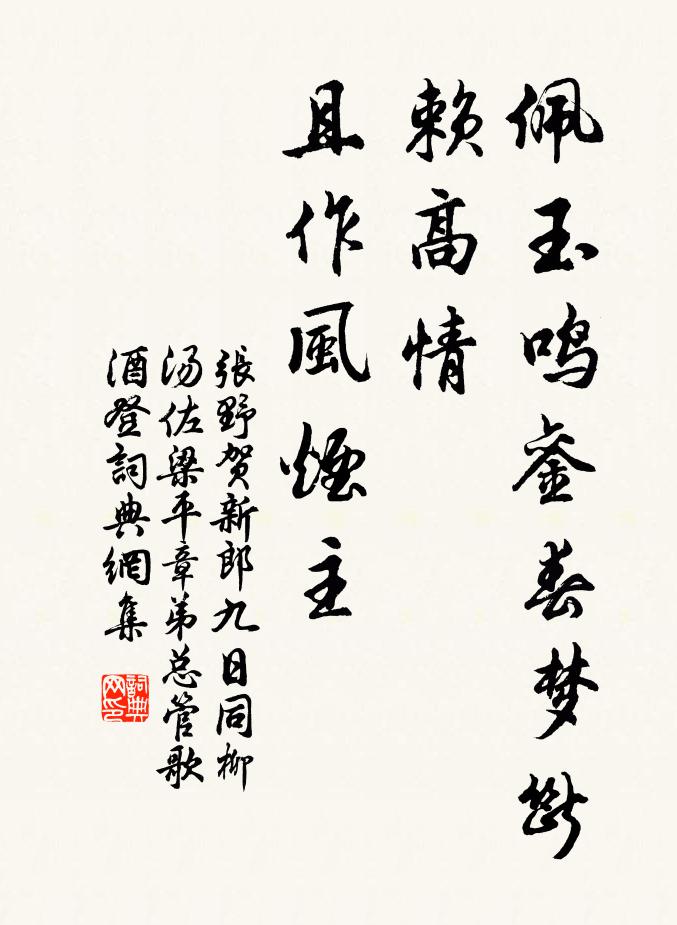 佩玉鸣銮春梦断
赖高情
且作風煙主
張野贺新郎九日同柳
汤佐梁平章弟总管歌
酒登詞典網集
詞典
网印